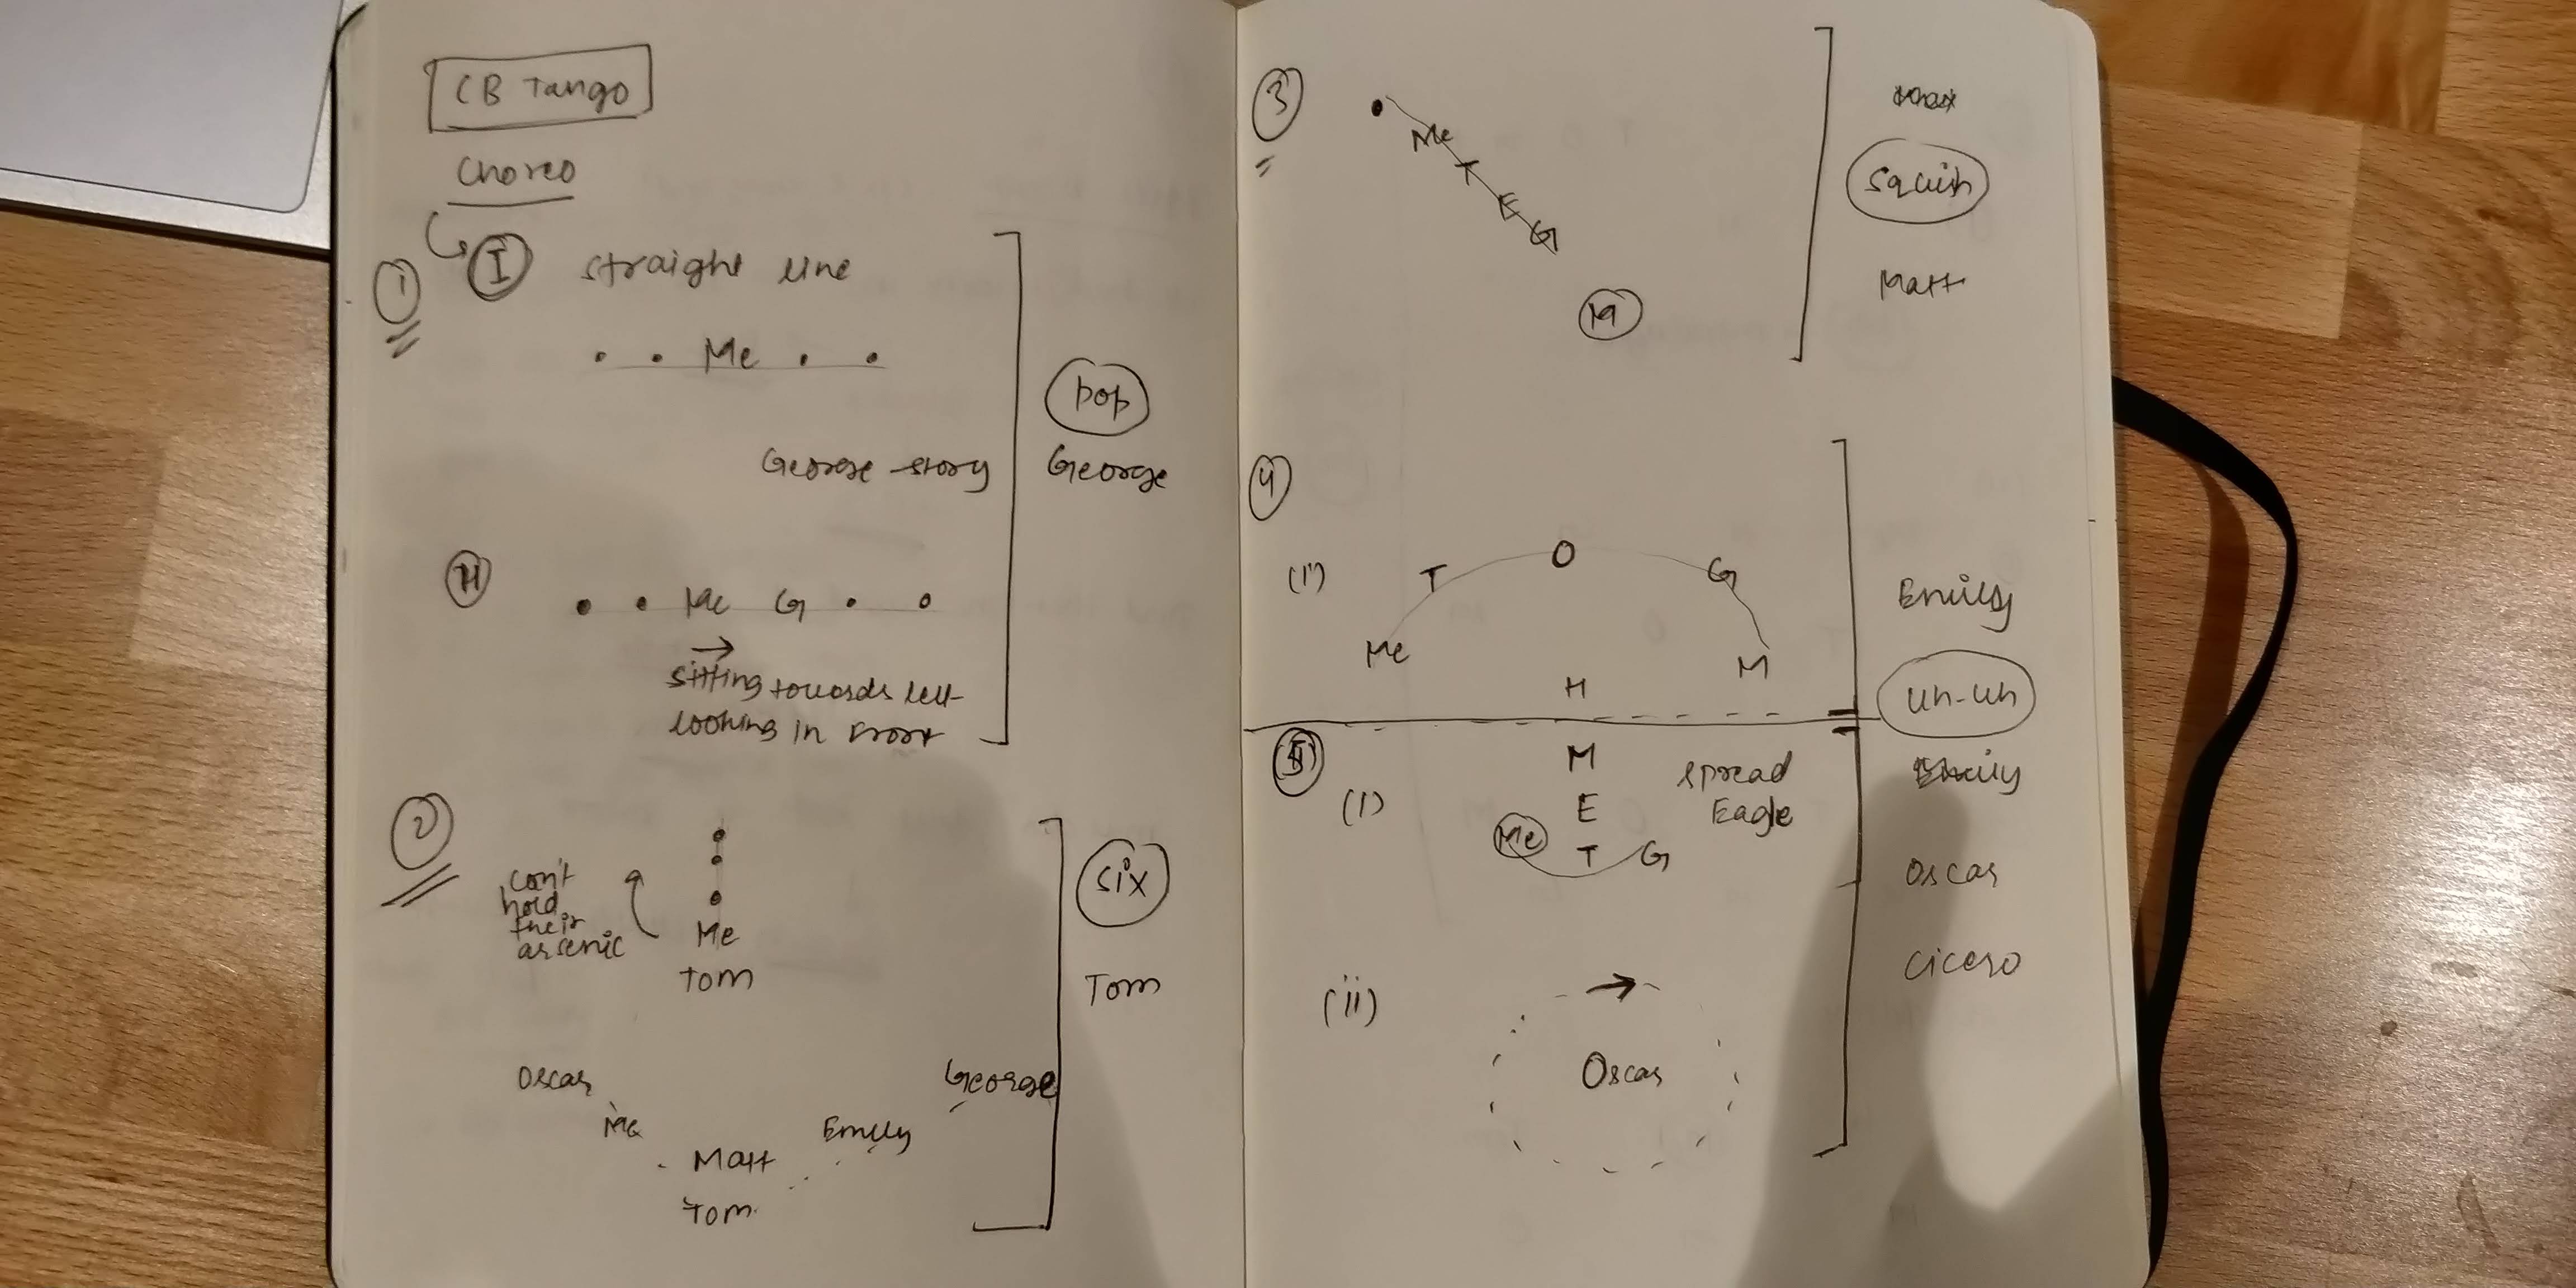 CB Tango
Choreo
1
I straight line
Me
George story
pop
George
II
Me G
sitting towards left
looking in front
2
can't
hold
their
arsenic
Me
Tom
six
Tom
Oscar
George
Me
Emily
Matt
Tom
3
Me
T
E
G
M
Squish
Matt
4
(i)
T O G
Me M
H
Emily
uh-uh
5
(i)
M
E
Me T G
spread
Eagle
Emily
Oscar
Cicero
(ii)
Oscar